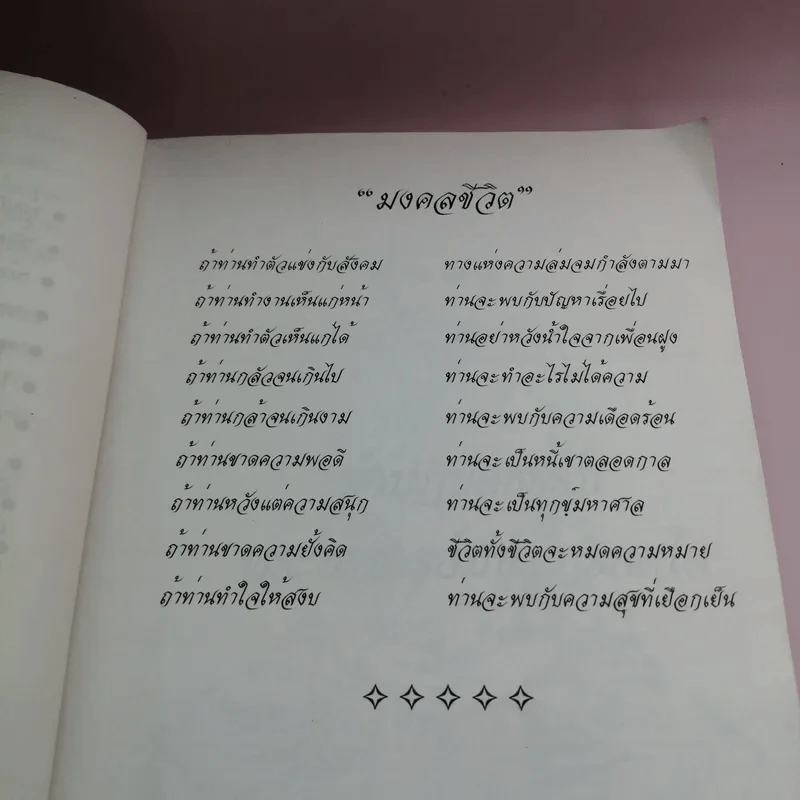 “มงคลชีวิต”
ถ้าท่านทำตัวแข่งกับสังคม ทางแห่งความล่มจมกำลังตามมา
ถ้าท่านทำงานเห็นแก่หน้า ท่านจะพบกับปัญหาเรื่อยไป
ถ้าท่านทำตัวเห็นแก่ได้ ท่านอย่าหวังน้ำใจจากเพื่อนฝูง
ถ้าท่านกลัวจนเกินไป ท่านจะทำอะไรไม่ได้ความ
ถ้าท่านกล้าจนเกินงาม ท่านจะพบกับความเดือดร้อน
ถ้าท่านขาดความพอดี ท่านจะเป็นหนี้เขาตลอดกาล
ถ้าท่านหวังแต่ความสนุก ท่านจะเป็นทุกข์มหาศาล
ถ้าท่านขาดความยั้งคิด ชีวิตทั้งชีวิตจะหมดความหมาย
ถ้าท่านทำใจให้สงบ ท่านจะพบกับความสุขที่เยือกเย็น